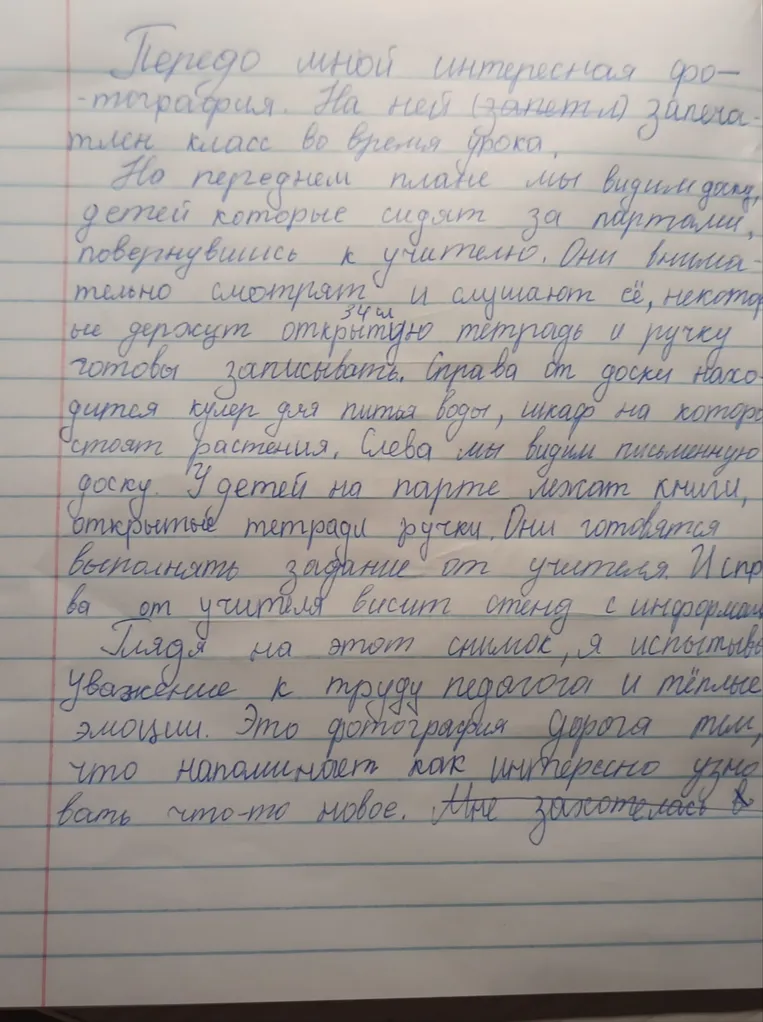 Передо мной интересная фо-
-тография. На ней (запетл) запеча-
тлен класс во время урока.
На переднем плане мы видим доску,
детей которые сидят за партами,
повернувшись к учителю. Они внима-
тельно смотрят и слушают её, некотор
ые держут открытую тетрадь и ручку
готовы записывать. Справа от доски нахо-
дится кулер для питья воды, шкаф на которо
стоят растения. Слева мы видим письменную
доску. У детей на парте лежат книги,
открытые тетради ручки. Они готовятся
выполнять задание от учителя. И спр
ва от учителя висит стенд с информац
Глядя на этот снимок, я испытыва
уважение к труду педагога и тёплые
эмоции. Это фотография дорога тем,
что напоминает как интерсно узно
вать что-то новое. Мне захотелась в